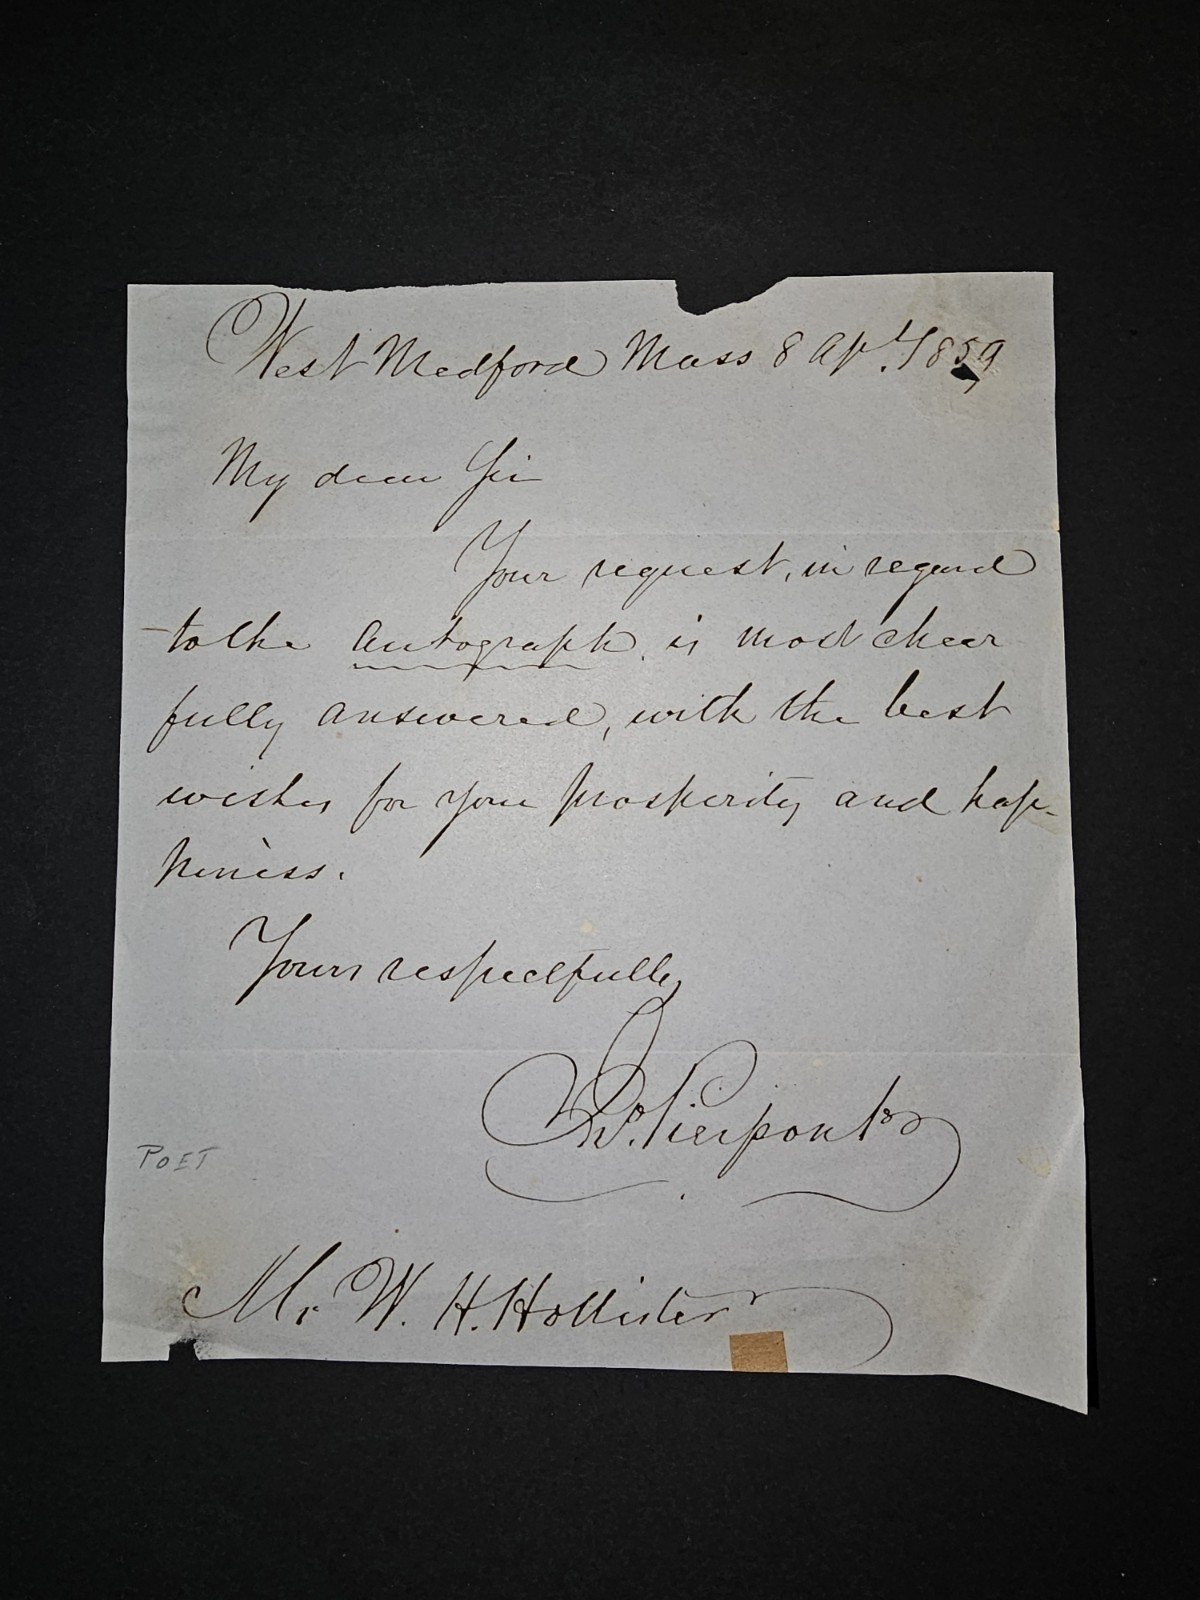 West Medford Mass 8 Apl. 1859
My dear Sir
Your request, in regard
to the Autograph, is most cheer
fully answered, with the best
wishes for your prosperity and hap-
piness.
Yours respectfully
Jno. Pierpont
POET
Mr W. H. Hollister